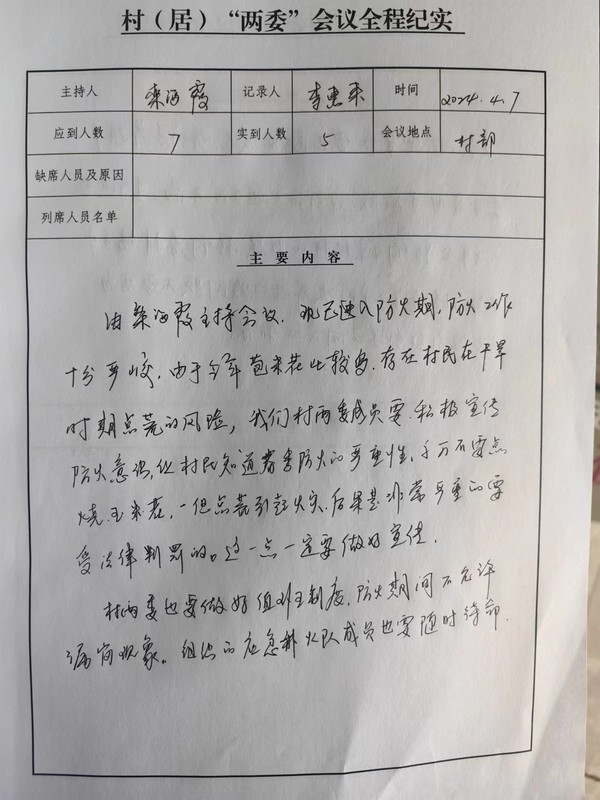 村（居）“两委”会议全程纪实
主持人 栾海霞 记录人 李惠来 时间 2024.4.7
应到人数 7 实到人数 5 会议地点 村部
缺席人员及原因
列席人员名单
主要内容
由栾海霞主持会议。现已进入防火期，防火工作
十分严峻，由于今年苞米茬比较多，存在村民在干旱
时期点荒的风险，我们村两委成员要积极宣传
防火意识，让村民知道春季防火的严重性，千万不要点
烧玉米茬，一但点荒引起火灾，后果是非常严重的要
受法律判罚的。这一点一定要做好宣传。
村两委也要做好值班制度，防火期间不允许
漏岗现象。组织的应急扑火队成员也要随时待命.